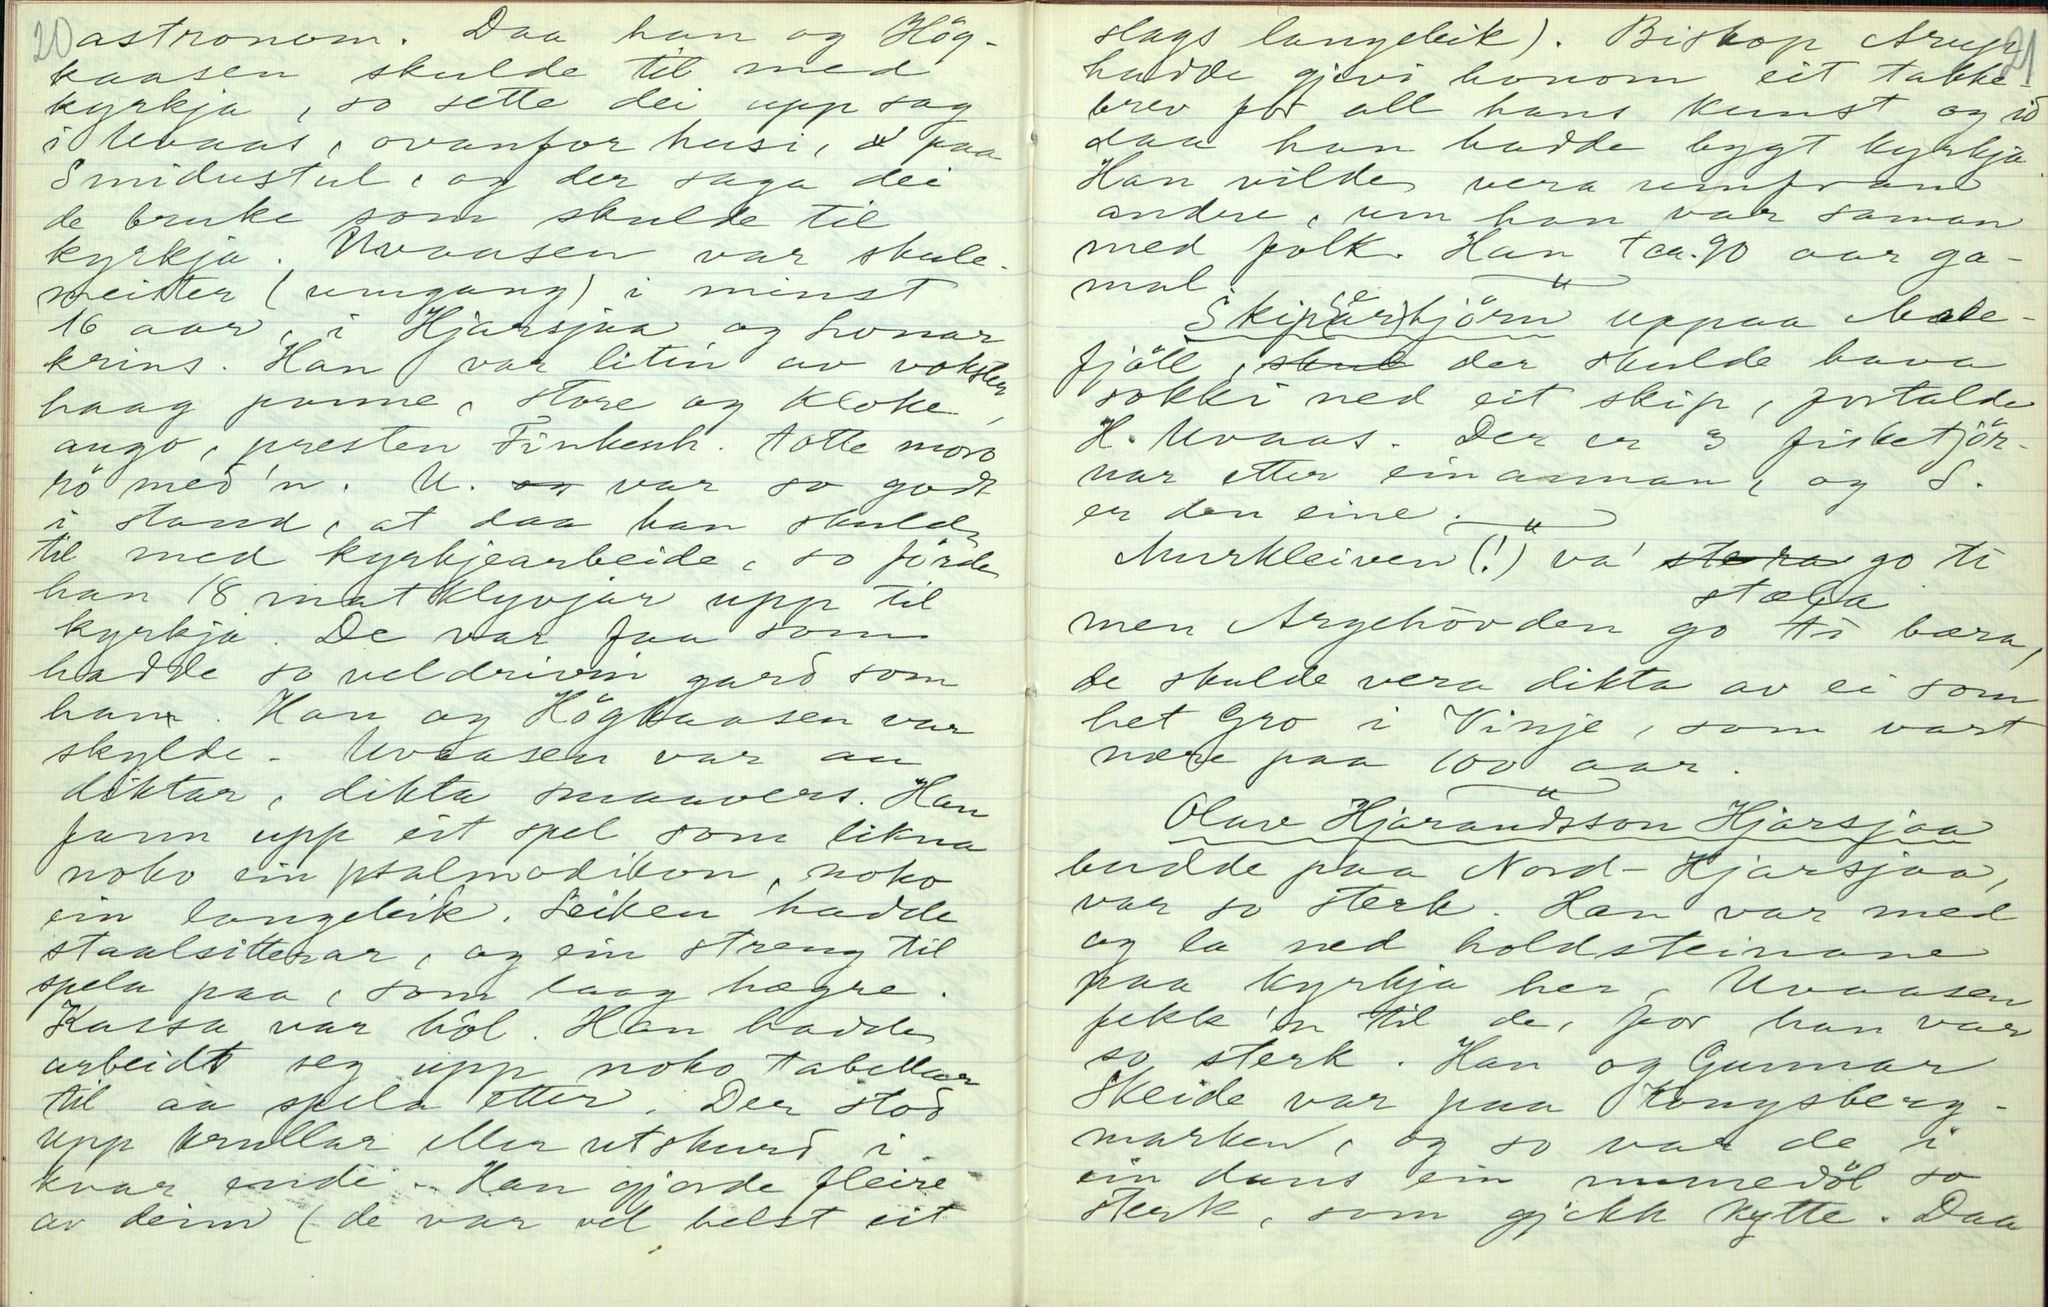 20
astronom. Daa han og Hög-
kaasen skulde til med
kyrkja, so sette dei upp sag
i Uvaas, ovanfor husi, paa
Smidustul, og der saga dei
de bruke som skulde til
kyrkja. Uvaasen var skule-
meister (umgang) i minst
16 aar, i Hjarsjaa og
krins. Han var litin av vokster,
haag panne, store og kloke
augo, presten Finkenh. totte moro
rö med'n. U. var so godt
i stand, at daa han skulde
til med kyrkjearbeide, so förde
han 18 matklyvjar upp til
kyrkja. De var faa som
hadde so veldrivin gard som
han. Han og Högkaasen var
skylde. Uvaasen var au
diktar, dikta smaavers. Han
fann upp eit spel som likna
noko ein psalmodikon, noko
ein langeleik. Leiken hadde
staalsitterar, og ein streng til
spela paa, som laag högre.
Kassa var hôl. Han hadde
arbeidt seg upp noko tabellar
til aa spela etter. Der stod
upp krullar eller utskurd i
kvar ende. Han gjorde fleire
av deim (de var vel helst eit
21
slags langeleik). Biskop Arup
hadde gjevi honom eit takke-
brev for all hans kunst og id
daa han hadde bygt kyrkja.
Han vilde vera umfram
andre, um han var saman
med folk. Han † ca. 90 aar ga-
mal.
Skip(ar)björn uppaa
fjöll, skul der skulde hava
sokki ned eit skip, fortalde
H. Uvaas. Der er 3 fisketjör-
nar etter einannan, og S.
er den eine.
Murkleiven (!) va' go ti
stæla
men Argehovden go ti bæra,
de skulde vera dikta av ei som
het Gro i Vinje, som vart
nære paa 100 aar.
Oluv Hjarandsson Hjarsjaa
budde paa Nord-Hjarsjaa,
var so sterk. Han var med
og la ned holdsteinane
paa kyrkja her, Uvaasen
fekk'n til de, for han var
so sterk. Han og Gunnar
Skeide var paa Kongsberg-
marken, og so var de i
ein dans ein numedöl so
sterk, som gjekk kytte. Daa